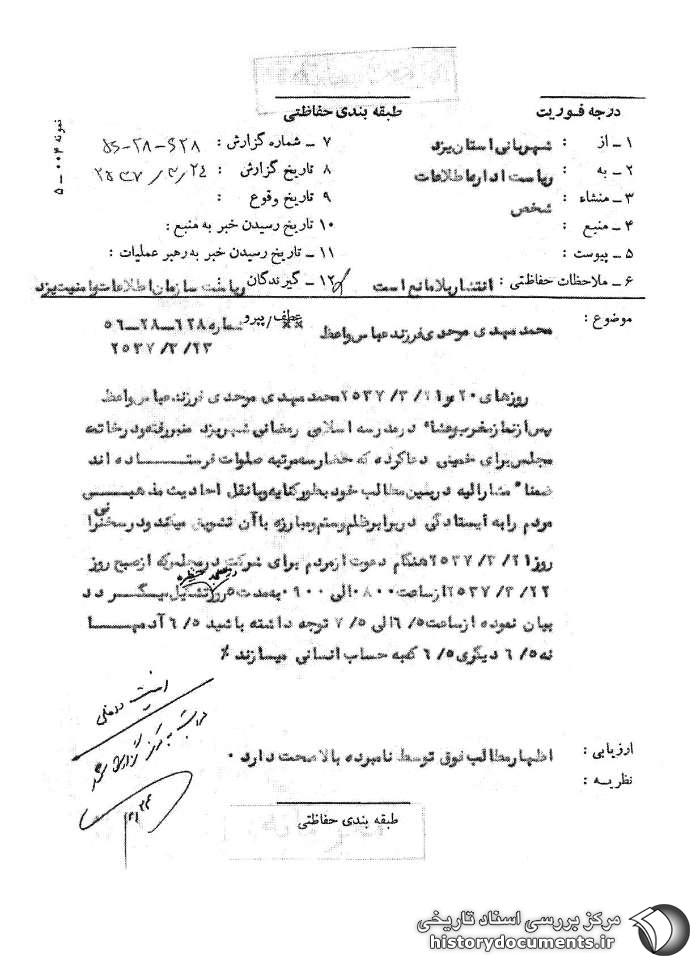 درجه فوریت
طبقه بندی حفاظتی
نمونه ۰۰۴ ــ ۵
۱ ــ از : شهربانی استان یزد
۲ ــ به : ریاست اداره اطلاعات
۳ ــ منشاء : شخص
۴ ــ منبع :
۵ ــ پیوست :
۶ ــ ملاحظات حفاظتی : انتشار بلامانع است
۷ ــ شماره گزارش : ۶۲۸-۲۸-۵۶
۸ تاریخ گزارش : ۲۵۳۷/۳/۲۴
۹ تاریخ وقوع :
۱۰ تاریخ رسیدن خبر به منبع :
۱۱ ــ تاریخ رسیدن خبر به رهبر عملیات :
۱۲ ــ گیرندگان ریاست سازمان اطلاعات و امنیت یزد
موضوع : محمد مهدی موحدی فرزند عباس واعظ
عطف/پیرو شماره ۶۲۸ــ۲۸ــ۵۶
۲۵۳۷/۳/۲۳
روزهای ۲۰ و ۲۵۳۷/۳/۲۱ محمد مهدی موحدی فرزند عباس واعظ
پس از نماز مغرب و عشاء در مدرسه اسلامی رمضانی شهر یزد منبر رفته و در خاتمه
مجلس برای خمینی دعا کرده که حضار سه مرتبه صلوات فرستاده اند
ضمناً مشارالیه در بین مطالب خود بطور کنایه و با نقل احادیث مذهبی
مردم را به ایستادگی در برابر ظلم و ستم و مبارزه با آن تشویق میکند و در سخنرانی
روز ۲۵۳۷/۳/۲۱ هنگام دعوت از مردم برای شرکت در مجلس که از صبح روز
۲۵۳۷/۳/۲۲ از ساعت ۰۸۰۰ الی ۰۹۰۰ به مدت ۵ روز در مسجد حظیره تشکیل میگردد
بیان نموده از ساعت ۶/۵ الی ۷/۵ توجه داشته باشید ۶/۵ آدمها
نه ۶/۵ دیگری ۶/۵ که به حساب انسانی میسازند ٪
ارزیابی : اظهار مطالب فوق توسط نامبرده بالا صحت دارد .
نظریه :
امنیت داخلی
طبقه بندی حفاظتی
مرکز بررسی اسناد تاریخی
historydocuments.ir